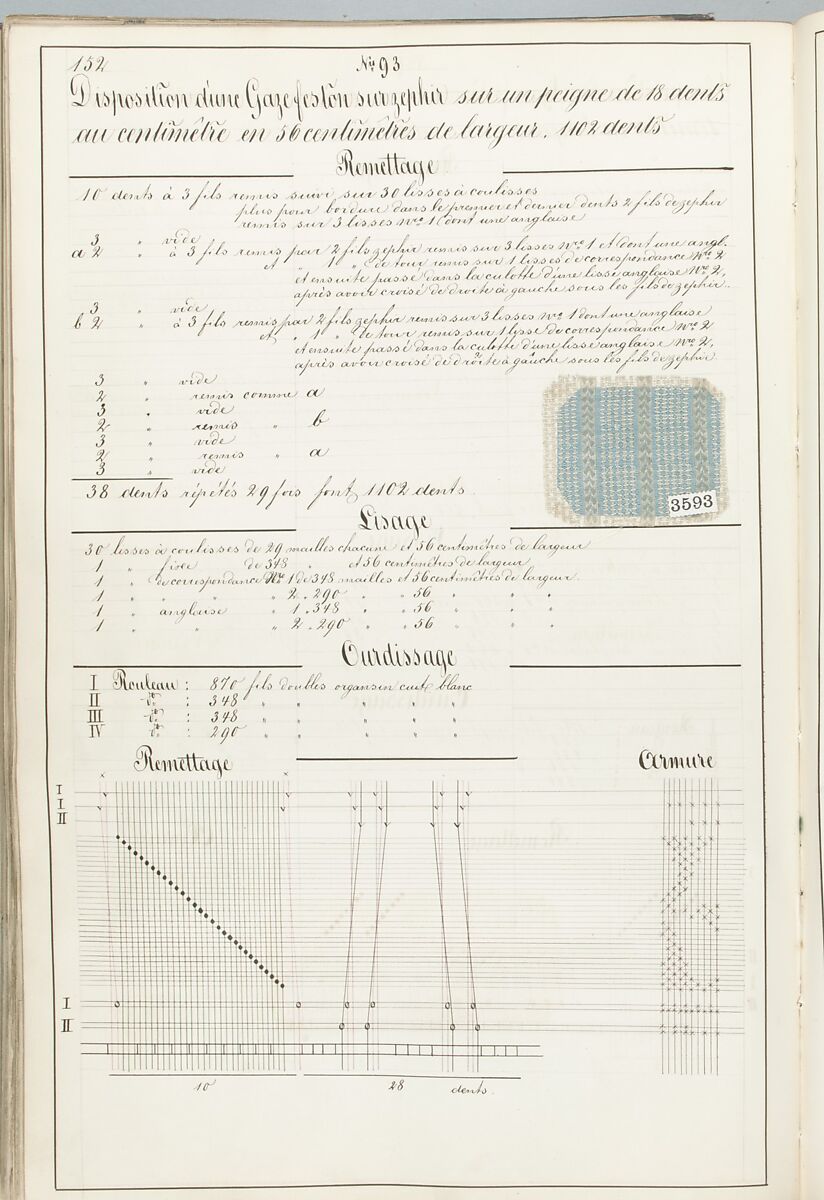 152
No 93
Disposition d'une Gaze feston sur zephir sur un peigne de 18 dents
au centimètre en 56 centimètres de largeur. 1102 dents
Remettage
10 dents à 3 fils remis suivi sur 30 lisses à coulisses
plus pour bordure dans le premier et dernier dents 2 fils de zephir
remis sur 3 lisses Nro 1 (dont une anglaise
3 " vide
a 2 " à 3 fils remis par 2 fils zephir remis sur 3 lisses Nro 1 et (dont une angl.
et " 1 " de tour remis sur 1 lisses de correspondance Nro 2
et ensuite passé dans la culotte d'une lisse anglaise Nro 2,
après avoir croisé de droite à gauche sous les fils de zephir..
3 " vide
b 2 " à 3 fils remis par 2 fils zephir remis sur 3 lisses No 1 dont une anglaise
et " 1 " de tour remis sur 1 lisse de correspondance Nro 2
et ensuite passé dans la culotte d'une lisse anglaise Nro 2,
après avoir croisé de droite à gauche sous les fils de zephir.
3 " vide
2 " remis comme a
3 " vide
2 " remis " b
3 " vide
2 " remis " a
3 " vide
38 dents répétés 29 fois font 1102 dents.
3593
Lisage
30 lisses à coulisses de 29 mailles chacune et 56 centimètres de largeur
1 " fixe de 348 " et 56 centimètres de largeur
1 " de correspondance Nro 1 de 348 mailles et 56 centimètres de largeur.
1 " " " 2 " 290 " " 56 " " "
1 " anglaise " 1 " 348 " " 56 " " "
1 " " " 2 " 290 " " 56 " " "
Ourdissage
I Rouleau : 870 fils doubles organsin cuit blanc
II do : 348 " " " " "
III do : 348 " " " " "
IV do : 290 " " " " "
Remettage
Armure
I
I
II
I
II
10 28 dents.